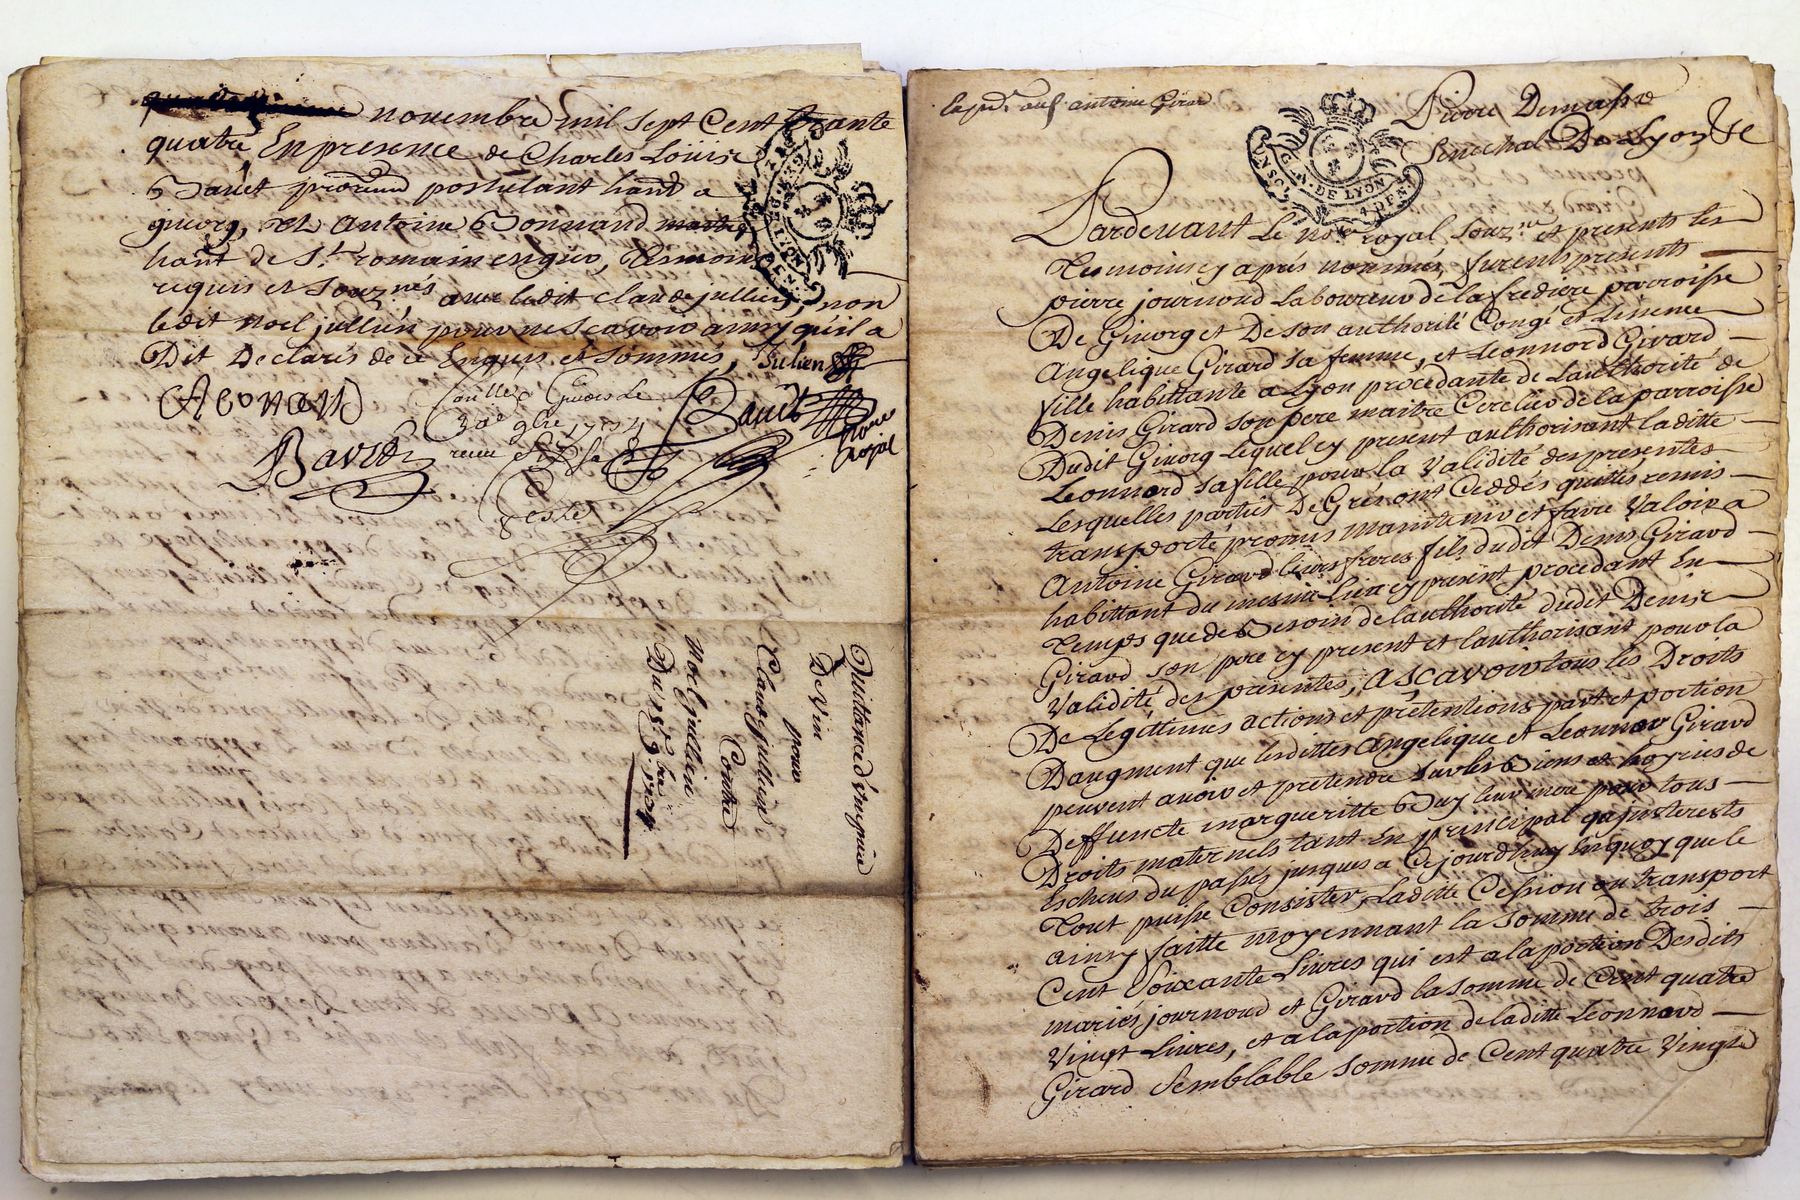 novembre mil sept Cent trante
quatre En presence de Charles Loüis
Bauët postulant hant a
givorg, et Antoine Bonnand
hant de St. romain engier, temoins
requis et Souznés avec ledit claude jullien, non
ledit noel jullien pour ne Scavoir ainsy qu'il a
Dit Declaré de ce Enquis et Sommés, Julien
ABonand
Bavet
Conttlé a Givors Le
9bre 1734
receu
Bauët
Nore
royal
Quittance d'
De Vin
pour
Claude jullien
Contre
Noel jullien
Du 15e 9bre 1734
exped. au sr. antoine Girard
GEN. DE LYON
Pierre Demasso
Senechal De Lyon
GEN. DE LYON
4 DEN
Pardevant Le nore. royal Souzne. et presents les
Temoins cy aprés nommés, furent presents
pierre journoud Laboureur de la frediere parroisse
De Givorg et De Son authorité Congé et Lissence
Angelique Girard Sa femme, et Leonnord Girard
fille habittante a Lyon procédante de Lauthorité de
Denis Girard Son pere maitre Cerclier de la parroisse
Dudit Givorg Lequel cy present authorisant laditte
Leonnord Sa fille pour la Validité des presentes
Lesquelles parties De Gré ont Ceddés quittés remis
transporté promis maintenir et faire Valoir a
Antoine Girard leurs freres fils dudit Denis Girard
habittant du mesme Lieu cy present procedant En
Temps que de Besoin de lauthorité dudit Denis
Girard son pere cy present et lauthorisant pour la
Validité des presentes, A Scavoir tous les Droits
De Legittimes actions et prétentions part et portion
Daugment que lesdittes Angelique et Leonnor Girard
peuvent avoir et prétendre Sur les Biens et hoyries de
Deffuncte margueritte Buy leur mere pour tous
Droits maternels tant En principal qu'jnterests
Escheus du passés jusques a Cejourdhuy En quoy que le
Tout puisse Consister, Laditte Cession ou transport
ainsy faitte moyennant la Somme de trois
Cent Soixante Livres qui est a la portion Desdits
mariés journoud et Girard la Somme de Cent quatre
Vingt Livres, et a la portion de laditte Leonnord
Girard Semblable Somme de Cent quatre Vingt